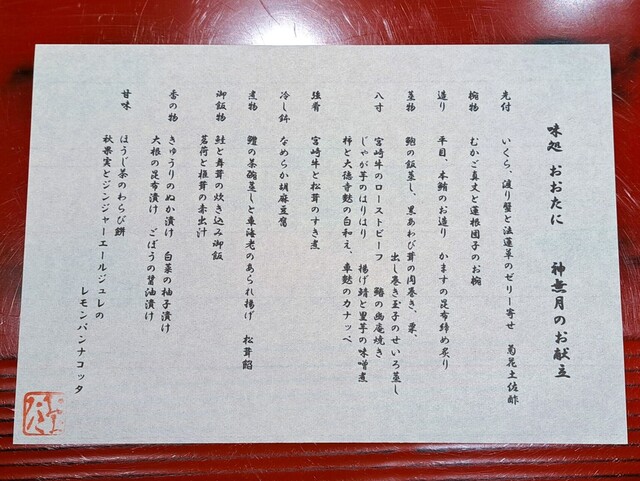 味処 おおたに 神無月のお献立
先付 いくら、渡り蟹と法蓮草のゼリー寄せ 菊花土佐酢
椀物 むかご真丈と蓮根団子のお椀
造り 平目、本鮪のお造り かますの昆布締め炙り
蒸物 鮑の飯蒸し、黒あわび茸の肉巻き、栗、
出し巻き玉子のせいろ蒸し
八寸 宮崎牛のローストビーフ 鰆の幽庵焼き
じゃが芋のはりはり 揚げ鯖と里芋の味噌煮
柿と大徳寺麩の白和え、車麩のカナッペ
強肴 宮崎牛と松茸のすき煮
冷し鉢 なめらか胡麻豆腐
煮物 鱧の茶碗蒸しと車海老のあられ揚げ 松茸餡
御飯物 鮭と舞茸の炊き込み御飯
茗荷と椎茸の赤出汁
香の物 きゅうりのぬか漬け 白菜の柚子漬け
大根の昆布漬け ごぼうの醤油漬け
甘味 ほうじ茶のわらび餅
秋果実とジンジャーエールジュレの
レモンパンナコッタ